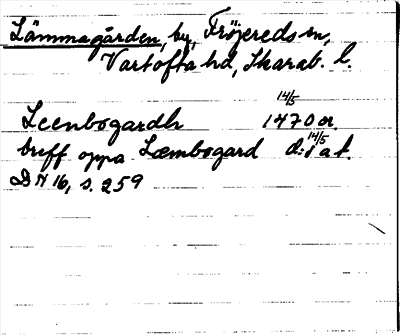 Lämmagården, by, Fröjereds sn,
Vartofta hd, Skarab. l.
Leenbogardh 14/5 1470 or.
breff oppa Læmbogard d: 14/5 a t.
DN 16, s. 259